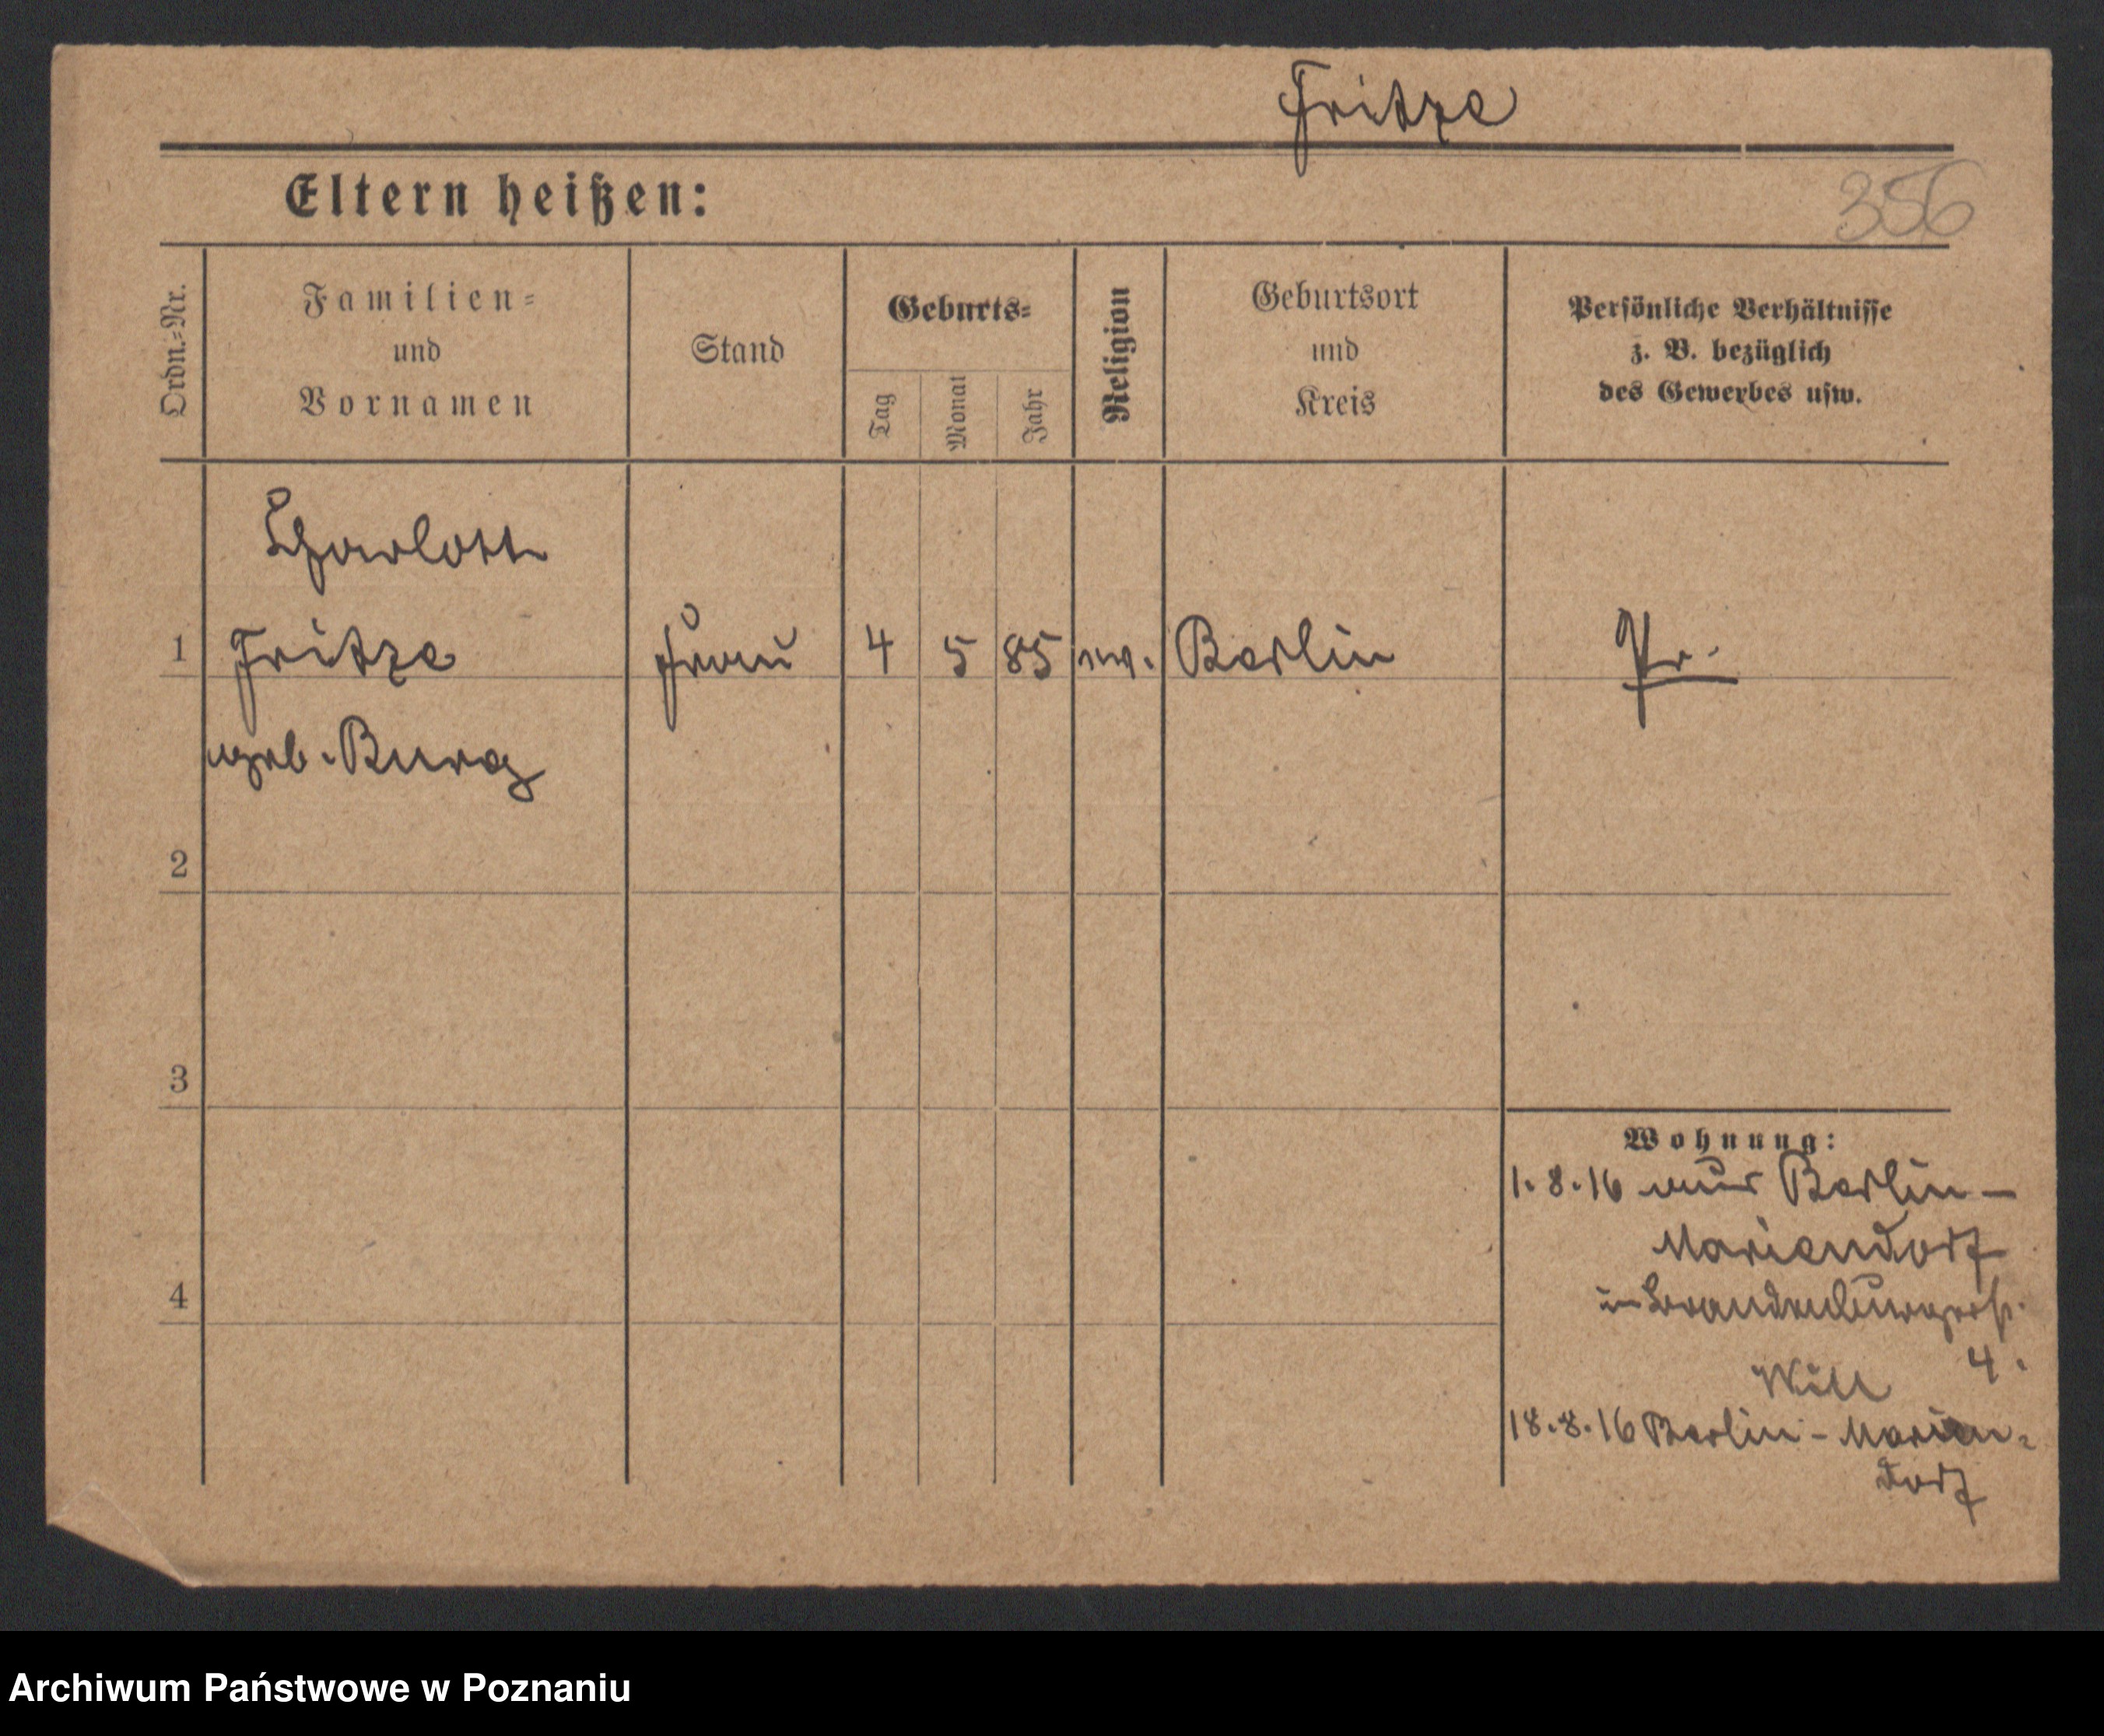 Fritze
Eltern heißen:
356
Ordn.=Nr.
Familien=
und
Vornamen
Stand
Geburts=
Tag
Monat
Jahr
Religion
Geburtsort
und
Kreis
Persönliche Verhältnisse
z. B. bezüglich
des Gewerbes usw.
Charlotte
1 Fritze Frau 4 5 85 ev. Berlin Pr.
geb. Burg
2
3
4
Wohnung:
1.8.16 aus Berlin-
Mariendorf
Brandenburgerstr.
4.
Will
18.8.16 Berlin-Marien=
dorf
Archiwum Państwowe w Poznaniu